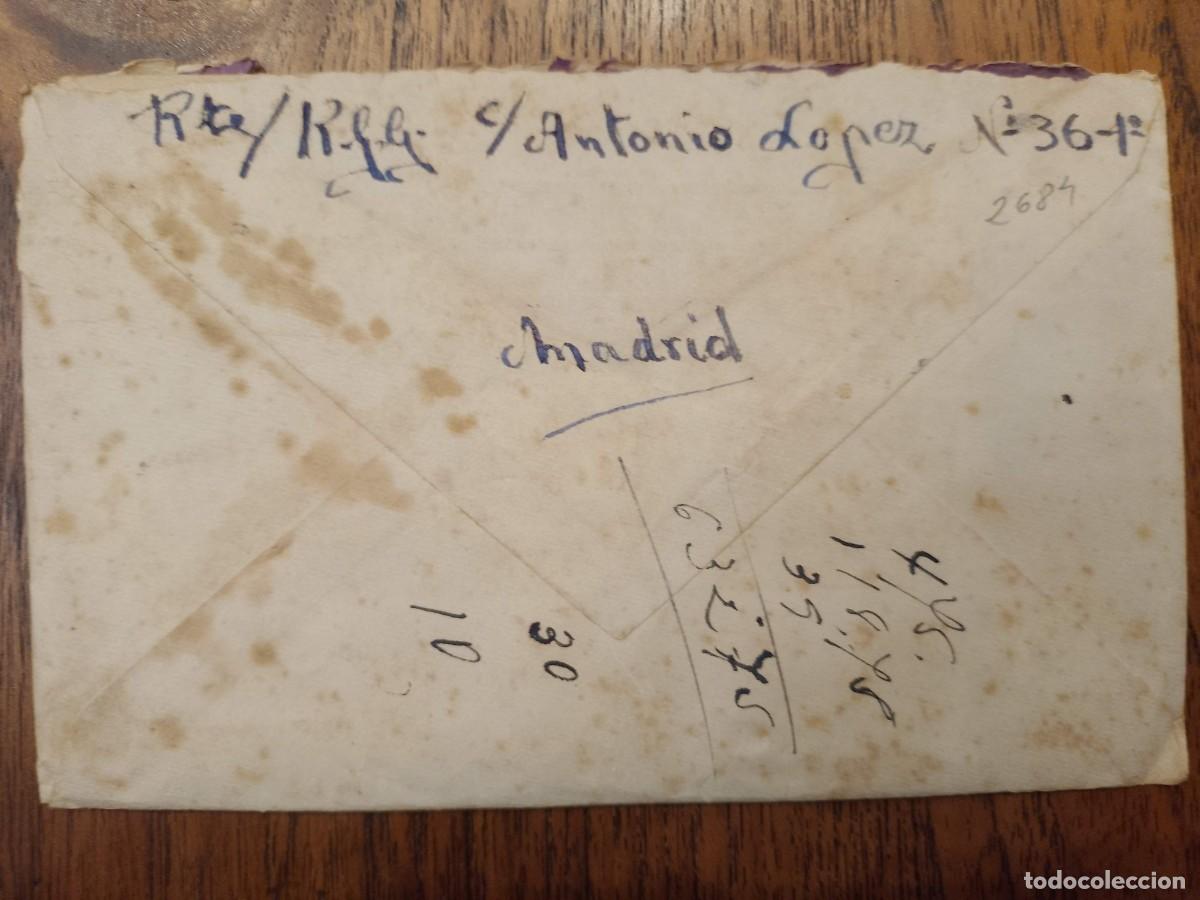 Rte/ R.G.G. c/ Antonio Lopez Nº 36-1º
2684
Madrid
35
30
10
todocoleccion